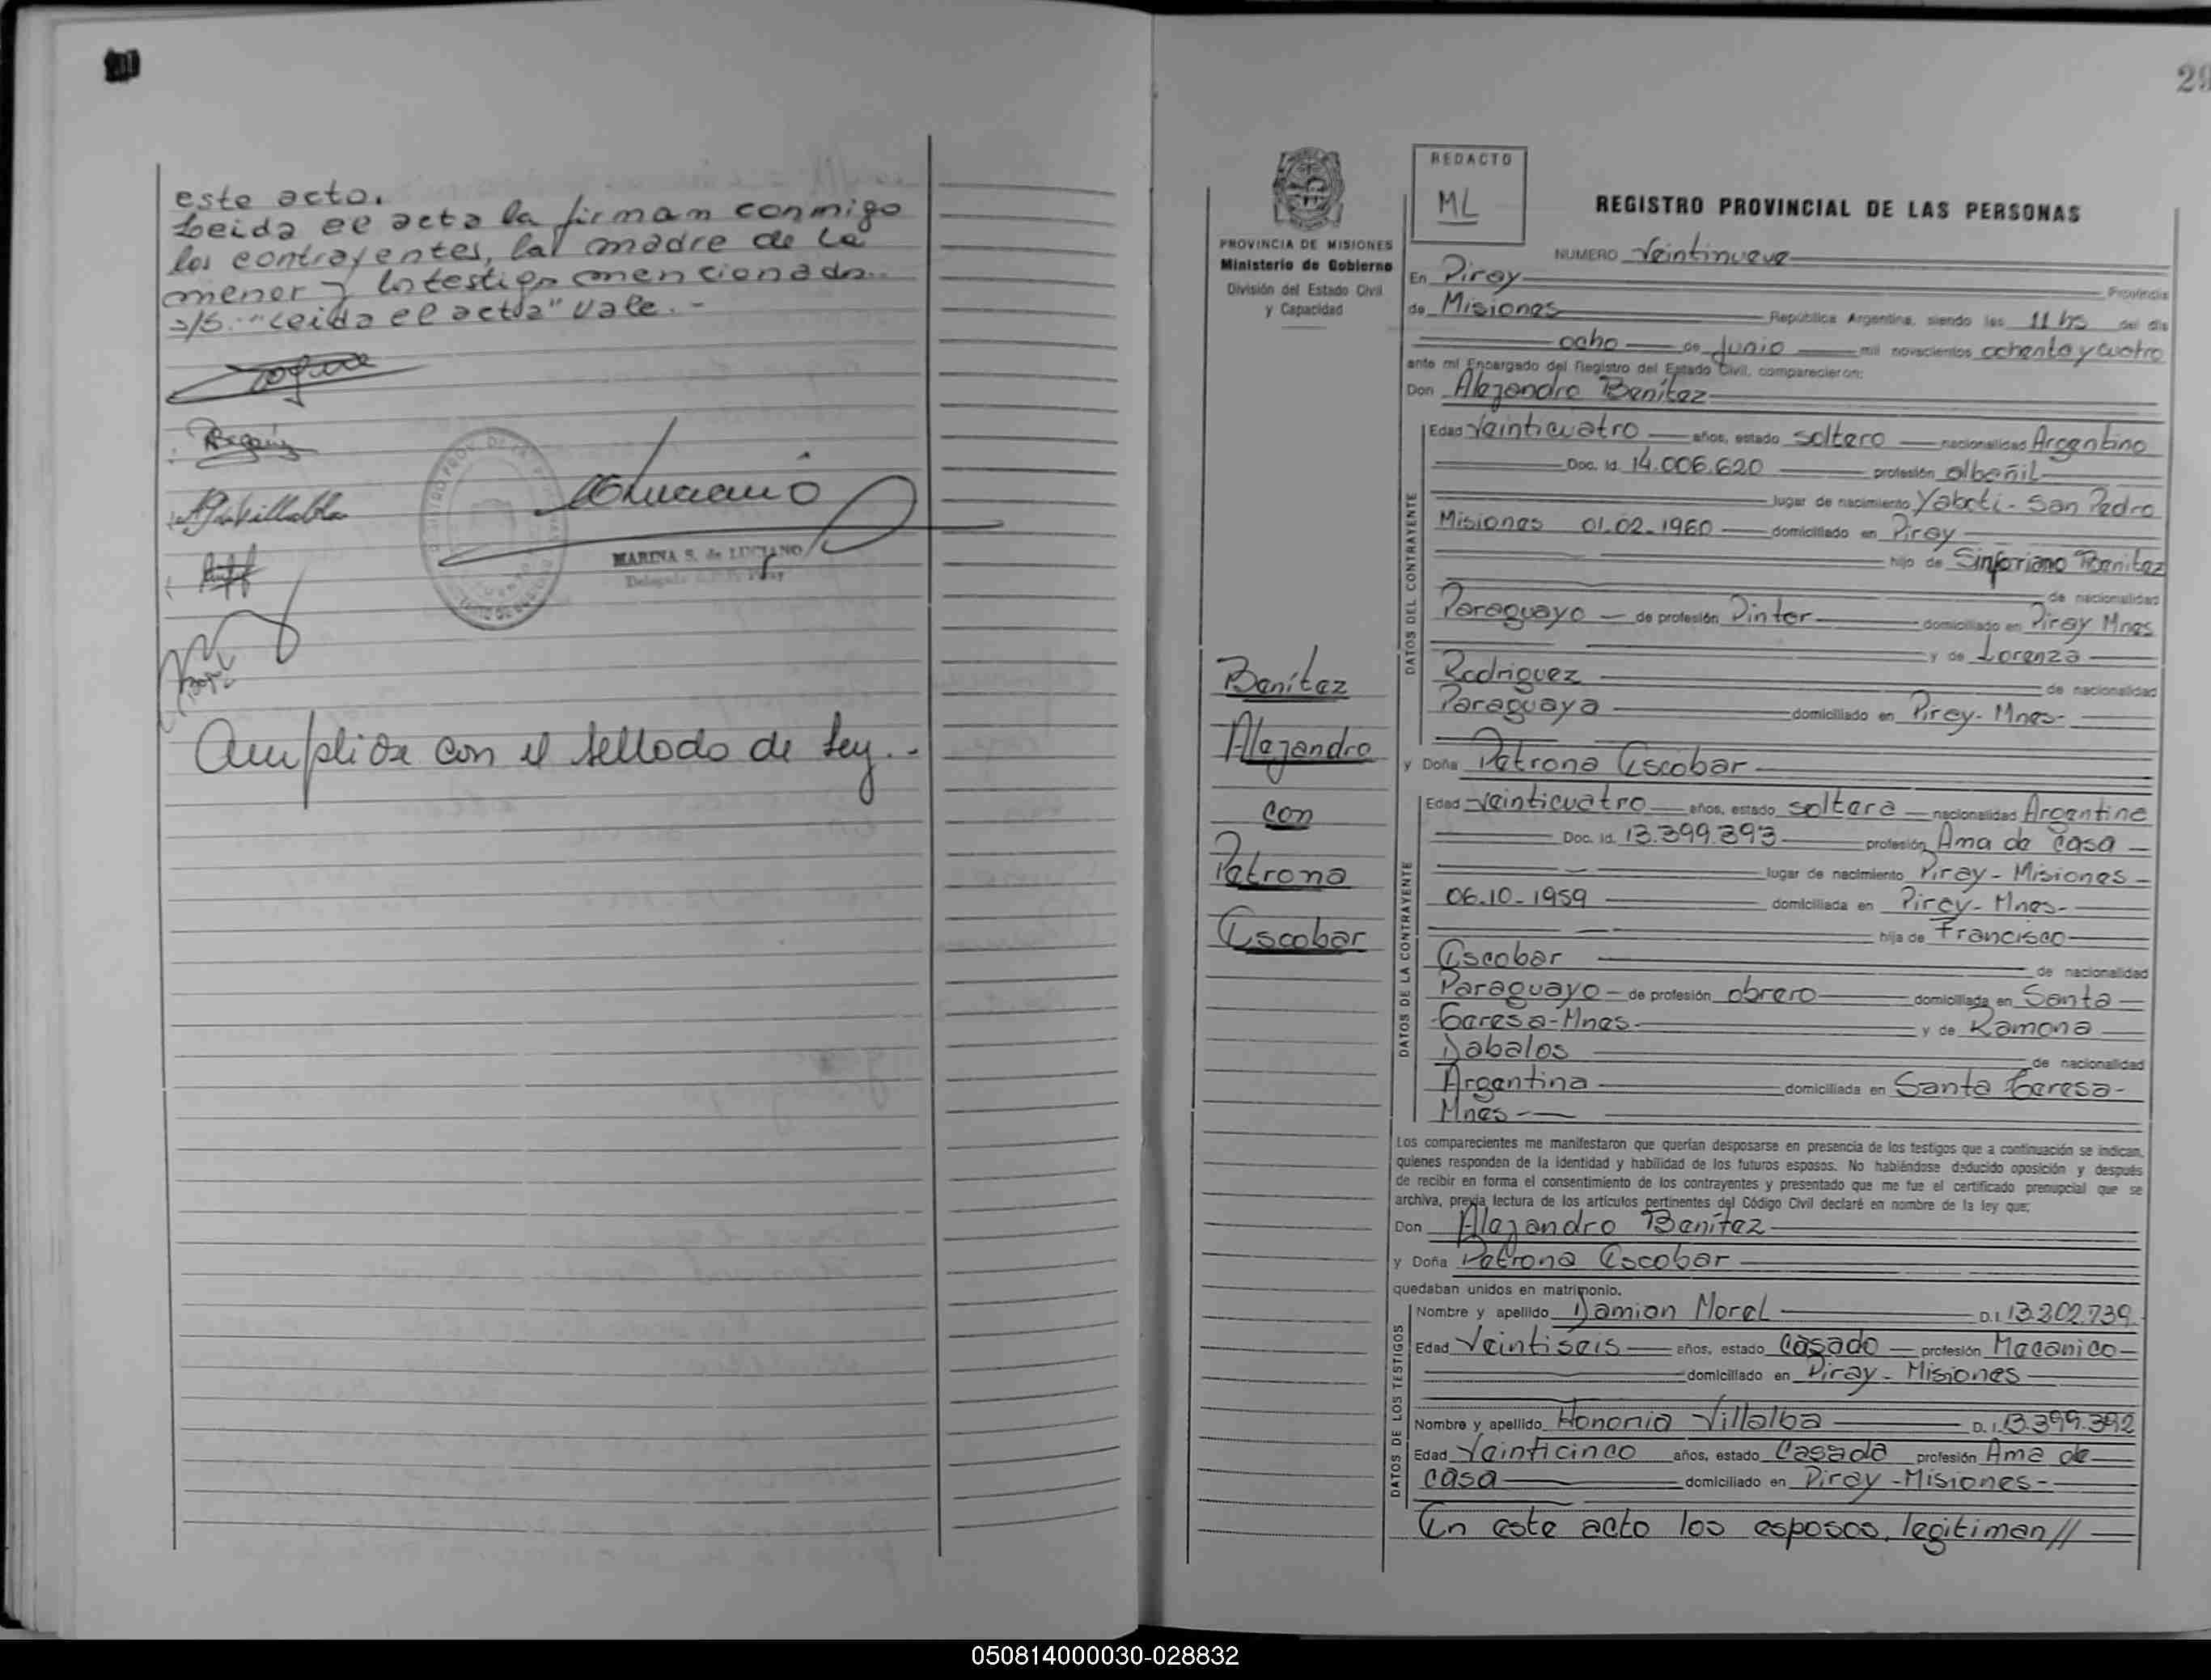 este acto.
Leida el acta la firman conmigo
los contrayentes, la madre de la
menor y los testigos mencionados.
s/s. "Leida el acta" vale. -
MARINA S. de LUCIANO
Amplida con el sellado de Ley. -
29
REDACTO
ML
REGISTRO PROVINCIAL DE LAS PERSONAS
PROVINCIA DE MISIONES
Ministerio de Gobierno
División del Estado Civil
y Capacidad
NUMERO Veintinueve
En Piray Provincia
de Misiones República Argentina, siendo las 11 hs del día
ocho de Junio mil novecientos ochenta y cuatro
ante mí Encargado del Registro del Estado Civil, comparecieron:
Don Alejandro Benítez
DATOS DEL CONTRAYENTE
Edad Veinticuatro años, estado soltero nacionalidad Argentino
Doc. Id. 14.006.620 profesión albañil
lugar de nacimiento Yaboti - San Pedro
Misiones 01.02.1960 domiciliado en Piray
hijo de Sinforiano Benitez
de nacionalidad
Paraguayo de profesión Pintor domiciliado en Piray Mnes
y de Lorenza
Rodriguez
de nacionalidad
Paraguaya domiciliado en Piray - Mnes-
Benítez
Alejandro
con
Petrona
Escobar
y Doña Petrona Escobar
DATOS DE LA CONTRAYENTE
Edad veinticuatro años, estado soltera nacionalidad Argentina
Doc. Id. 13.399.393 profesión Ama de casa
lugar de nacimiento Piray - Misiones -
06.10.1959 domiciliada en Piray - Mnes-
hija de Francisco
Escobar
de nacionalidad
Paraguayo - de profesión obrero domiciliada en Santa
Teresa-Mnes- y de Ramona
Dabalos
de nacionalidad
Argentina domiciliada en Santa Teresa-
Mnes -
Los comparecientes me manifestaron que querían desposarse en presencia de los testigos que a continuación se indican,
quienes responden de la identidad y habilidad de los futuros esposos. No habiéndose deducido oposición y después
de recibir en forma el consentimiento de los contrayentes y presentado que me fue el certificado prenupcial que se
archiva, previa lectura de los artículos pertinentes del Código Civil declaré en nombre de la ley que:
Don Alejandro Benítez
y Doña Petrona Escobar
quedaban unidos en matrimonio.
DATOS DE LOS TESTIGOS
Nombre y apellido Damian Morel D.I. 13.202.739
Edad Veintiseis años, estado Casado profesión Mecanico
domiciliado en Piray - Misiones
Nombre y apellido Honoria Villalba D.I. 13.399.392
Edad Veinticinco años, estado Casada profesión Ama de
casa domiciliado en Piray - Misiones -
En este acto los esposos, legitiman //
050814000030-028832